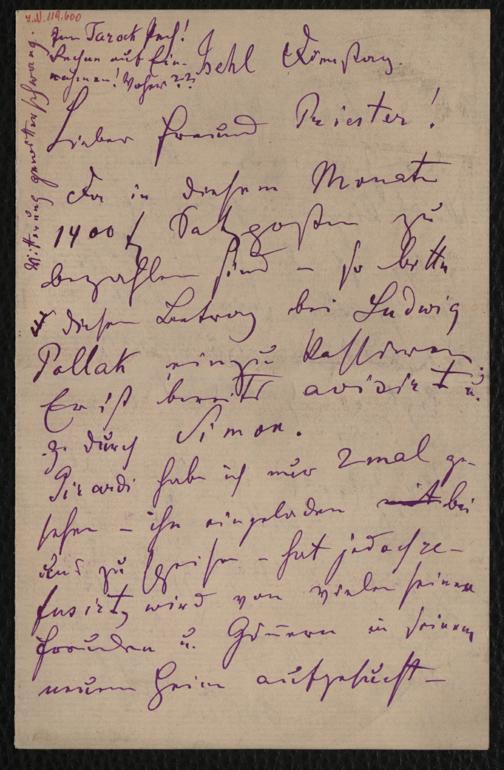 J.N. 119.600
zum Tarock Pech!
Rechne auf Ein-
nahmen! Woher??
Witterung gewitterschwang.
Ischl Dienstag.
Lieber Freund Priester!
Da in diesem Monate
1400 f Satzposten zu
bezahlen sind – so bitte
diesen Betrag bei Ludwig
Pollak einzukassieren.
Er ist bereits avisirt u.
z. durch Simon.
Girardi habe ich nur 2mal ge-
sehen – ihn eingeladen mit bei
uns zu speisen – hat jedoch re-
fusirt, wird von vielen seinen
Freunden u. Gönnern in seinem
neuen Heim aufgesucht –